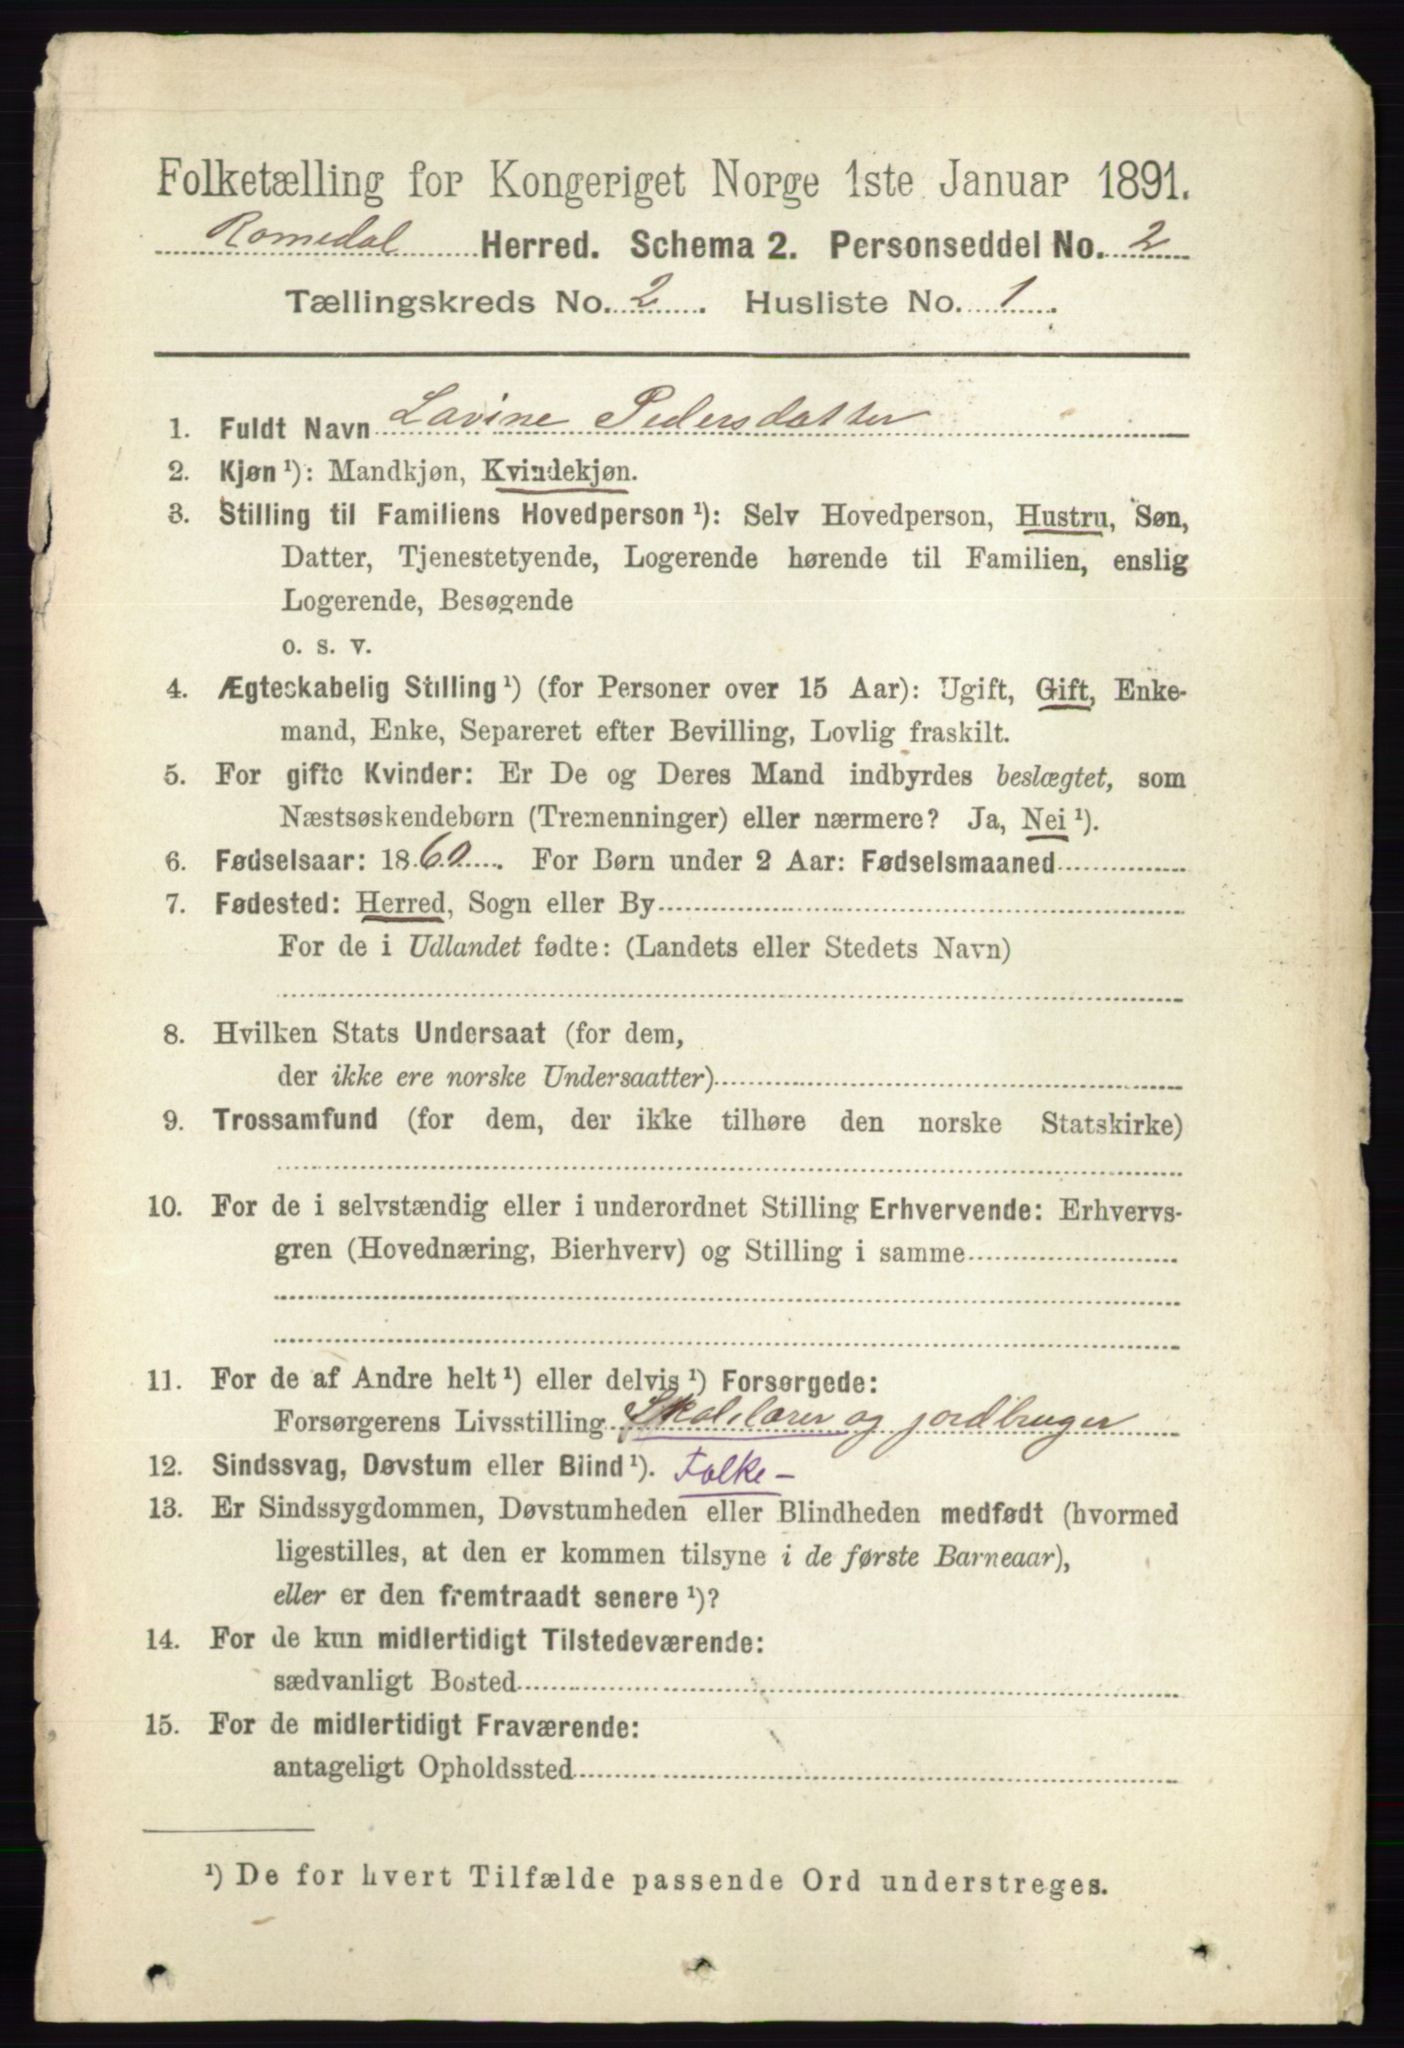 Folketælling for Kongeriget Norge 1ste Januar 1891.
Romedal Herred. Schema 2. Personseddel No. 2
Tællingskreds No. 2. Husliste No. 1.
1. Fuldt Navn Lavine Pedersdatter
2. Kjøn ¹): Mandkjøn, Kvindekjøn.
3. Stilling til Familiens Hovedperson ¹): Selv Hovedperson, Hustru, Søn,
Datter, Tjenestetyende, Logerende hørende til Familien, enslig
Logerende, Besøgende
o. s. v.
4. Ægteskabelig Stilling ¹) (for Personer over 15 Aar): Ugift, Gift, Enke-
mand, Enke, Separeret efter Bevilling, Lovlig fraskilt.
5. For gifte Kvinder: Er De og Deres Mand indbyrdes beslægtet, som
Næstsøskendebørn (Tremenninger) eller nærmere? Ja, Nei ¹).
6. Fødselsaar: 1860. For Børn under 2 Aar: Fødselsmaaned
7. Fødested: Herred, Sogn eller By
For de i Udlandet fødte: (Landets eller Stedets Navn)
8. Hvilken Stats Undersaat (for dem,
der ikke ere norske Undersaatter)
9. Trossamfund (for dem, der ikke tilhøre den norske Statskirke)
10. For de i selvstændig eller i underordnet Stilling Erhvervende: Erhvervs-
gren (Hovednæring, Bierhverv) og Stilling i samme
11. For de af Andre helt ¹) eller delvis ¹) Forsørgede:
Forsørgerens Livsstilling Skolelærer og jordbruger
12. Sindssvag, Døvstum eller Blind ¹). Folke-
13. Er Sindssygdommen, Døvstumheden eller Blindheden medfødt (hvormed
ligestilles, at den er kommen tilsyne i de første Barneaar),
eller er den fremtraadt senere ¹)?
14. For de kun midlertidigt Tilstedeværende:
sædvanligt Bosted
15. For de midlertidigt Fraværende:
antageligt Opholdssted
¹) De for hvert Tilfælde passende Ord understreges.